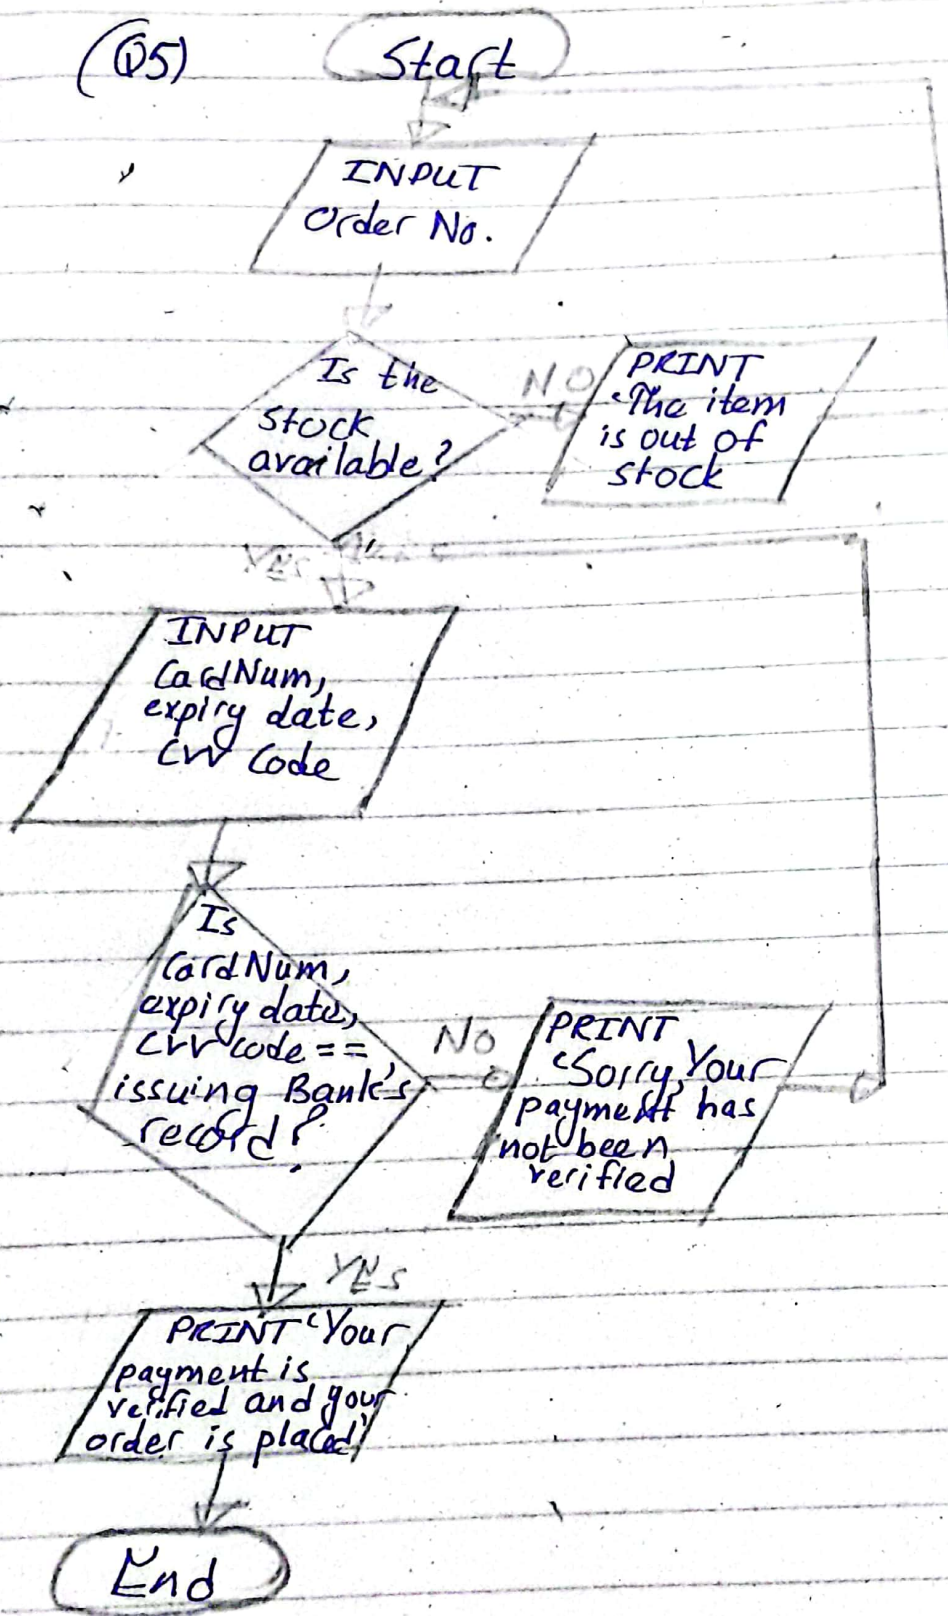 (Q5)
Start
INPUT
Order No.
Is the
stock
available?
NO
PRINT
'The item
is out of
stock
Yes
INPUT
CardNum,
expiry date,
CVV Code
Is
CardNum,
expiry date,
CVV code ==
issuing Bank's
record?
No
PRINT
'Sorry, Your
payment has
not been
verified
YES
PRINT 'Your
payment is
verified and your
order is placed'
End